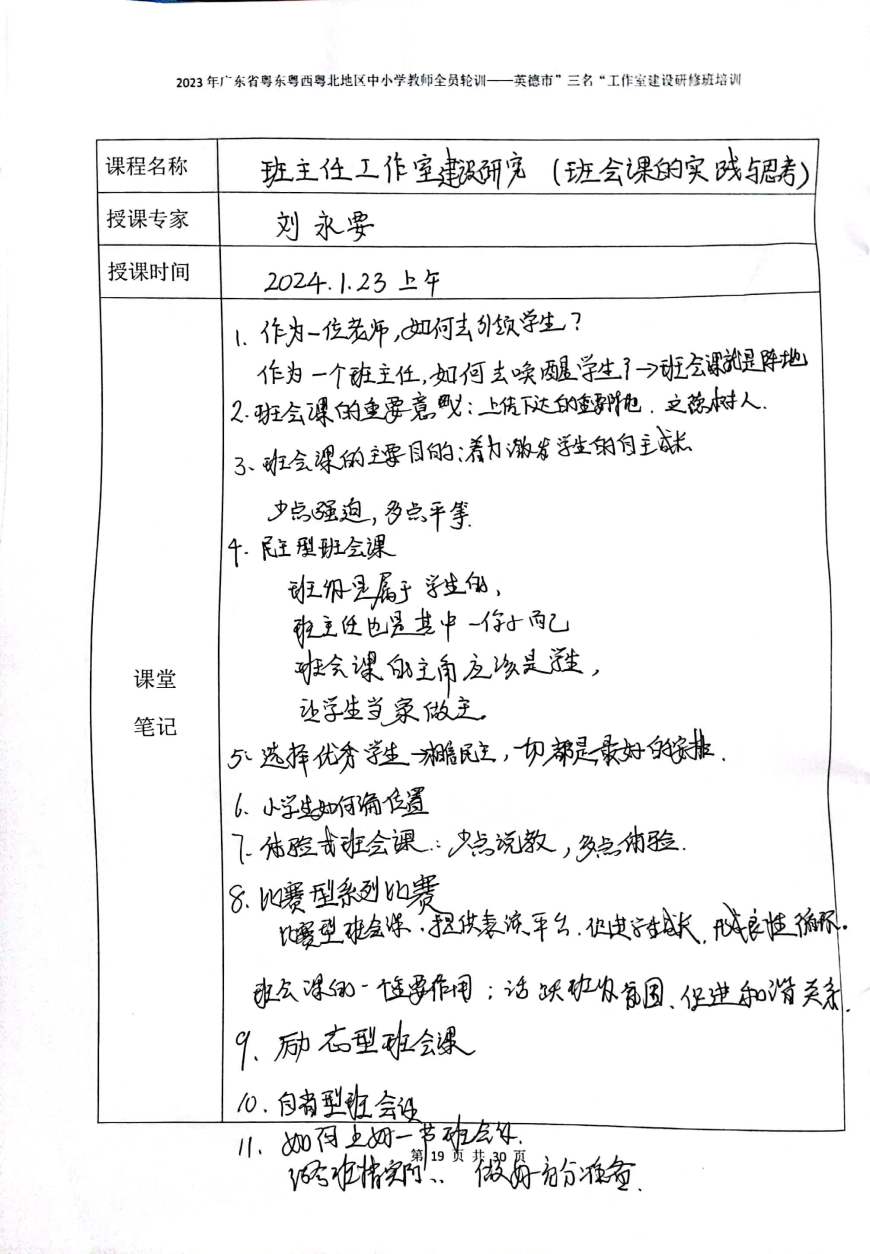 2023年广东省粤东粤西粤北地区中小学教师全员轮训——英德市”三名“工作室建设研修班培训
课程名称
班主任工作室建设研究（班会课的实践与思考）
授课专家
刘永要
授课时间
2024.1.23 上午
课堂
笔记
1. 作为一位老师，如何去引领学生？
作为一个班主任，如何去唤醒学生？→班会课就是阵地
2. 班会课的重要意义：上传下达的重要阵地．立德树人．
3、班会课的主要目的：着力激发学生的自主成长
少点强迫，多点平等
4. 民主型班会课
班级是属于学生的，
班主任也是其中一份子而已
班会课的主角应该是学生，
让学生当家做主。
5. 选择优秀学生→相信民主，一切都是最好的安排．
6. 小学生如何编位置
7. 体验式班会课：少点说教，多点体验．
8. 比赛型系列比赛
比赛型班会课．提供表演平台．促进学生成长，形成良性循环。
班会课的一个重要作用：活跃班级氛围、促进和谐关系．
9、励志型班会课
10. 自省型班会课
11. 如何上好一节班会课．
结合班情实际 做好充分准备．
第 19 页 共 30 页